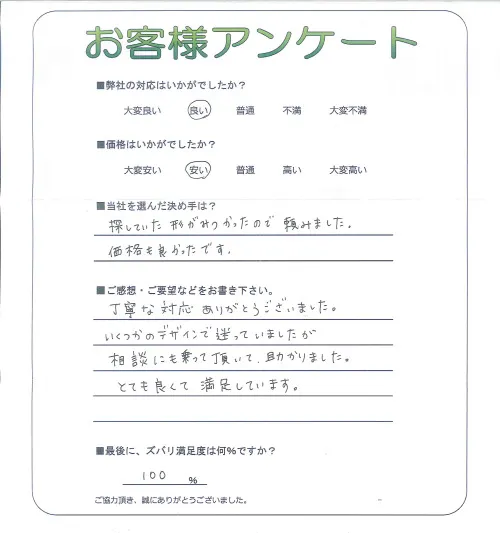 お客様アンケート
■弊社の対応はいかがでしたか？
大変良い 良い 普通 不満 大変不満
■価格はいかがでしたか？
大変安い 安い 普通 高い 大変高い
■当社を選んだ決め手は？
探していた形がみつかったので頼みました。
価格も良かったです.
■ご感想・ご要望などをお書き下さい。
丁寧な対応ありがとうございました。
いくつかのデザインで迷っていましたが
相談にも乗って頂いて、助かりました。
とても良くて満足しています。
■最後に、ズバリ満足度は何％ですか？
100 %
ご協力頂き、誠にありがとうございました。